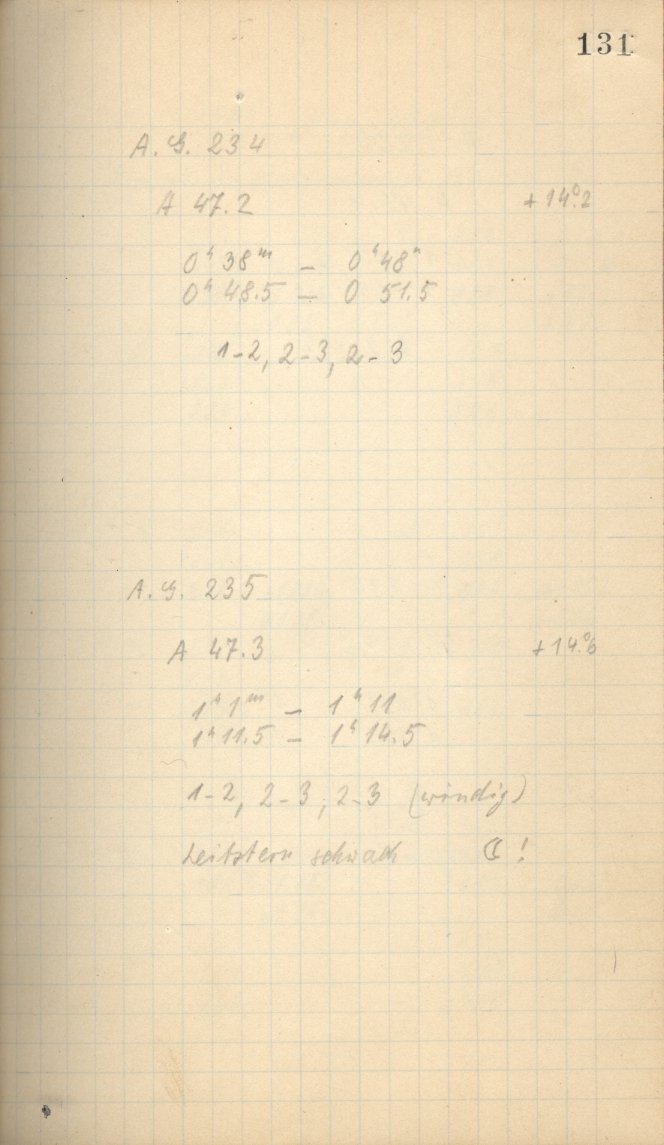 131
A. G. 234
A 47.2 + 14°.2
0ʰ 38ᵐ – 0ʰ 48ᵐ
0ʰ 48.5 – 0 51.5
1-2, 2-3, 2-3
A. G. 235
A 47.3 + 14°.6
1ʰ 1ᵐ – 1ʰ 11
1ʰ 11.5 – 1ʰ 14.5
1-2, 2-3, 2-3 (windig)
Leitstern schwach ☾ !